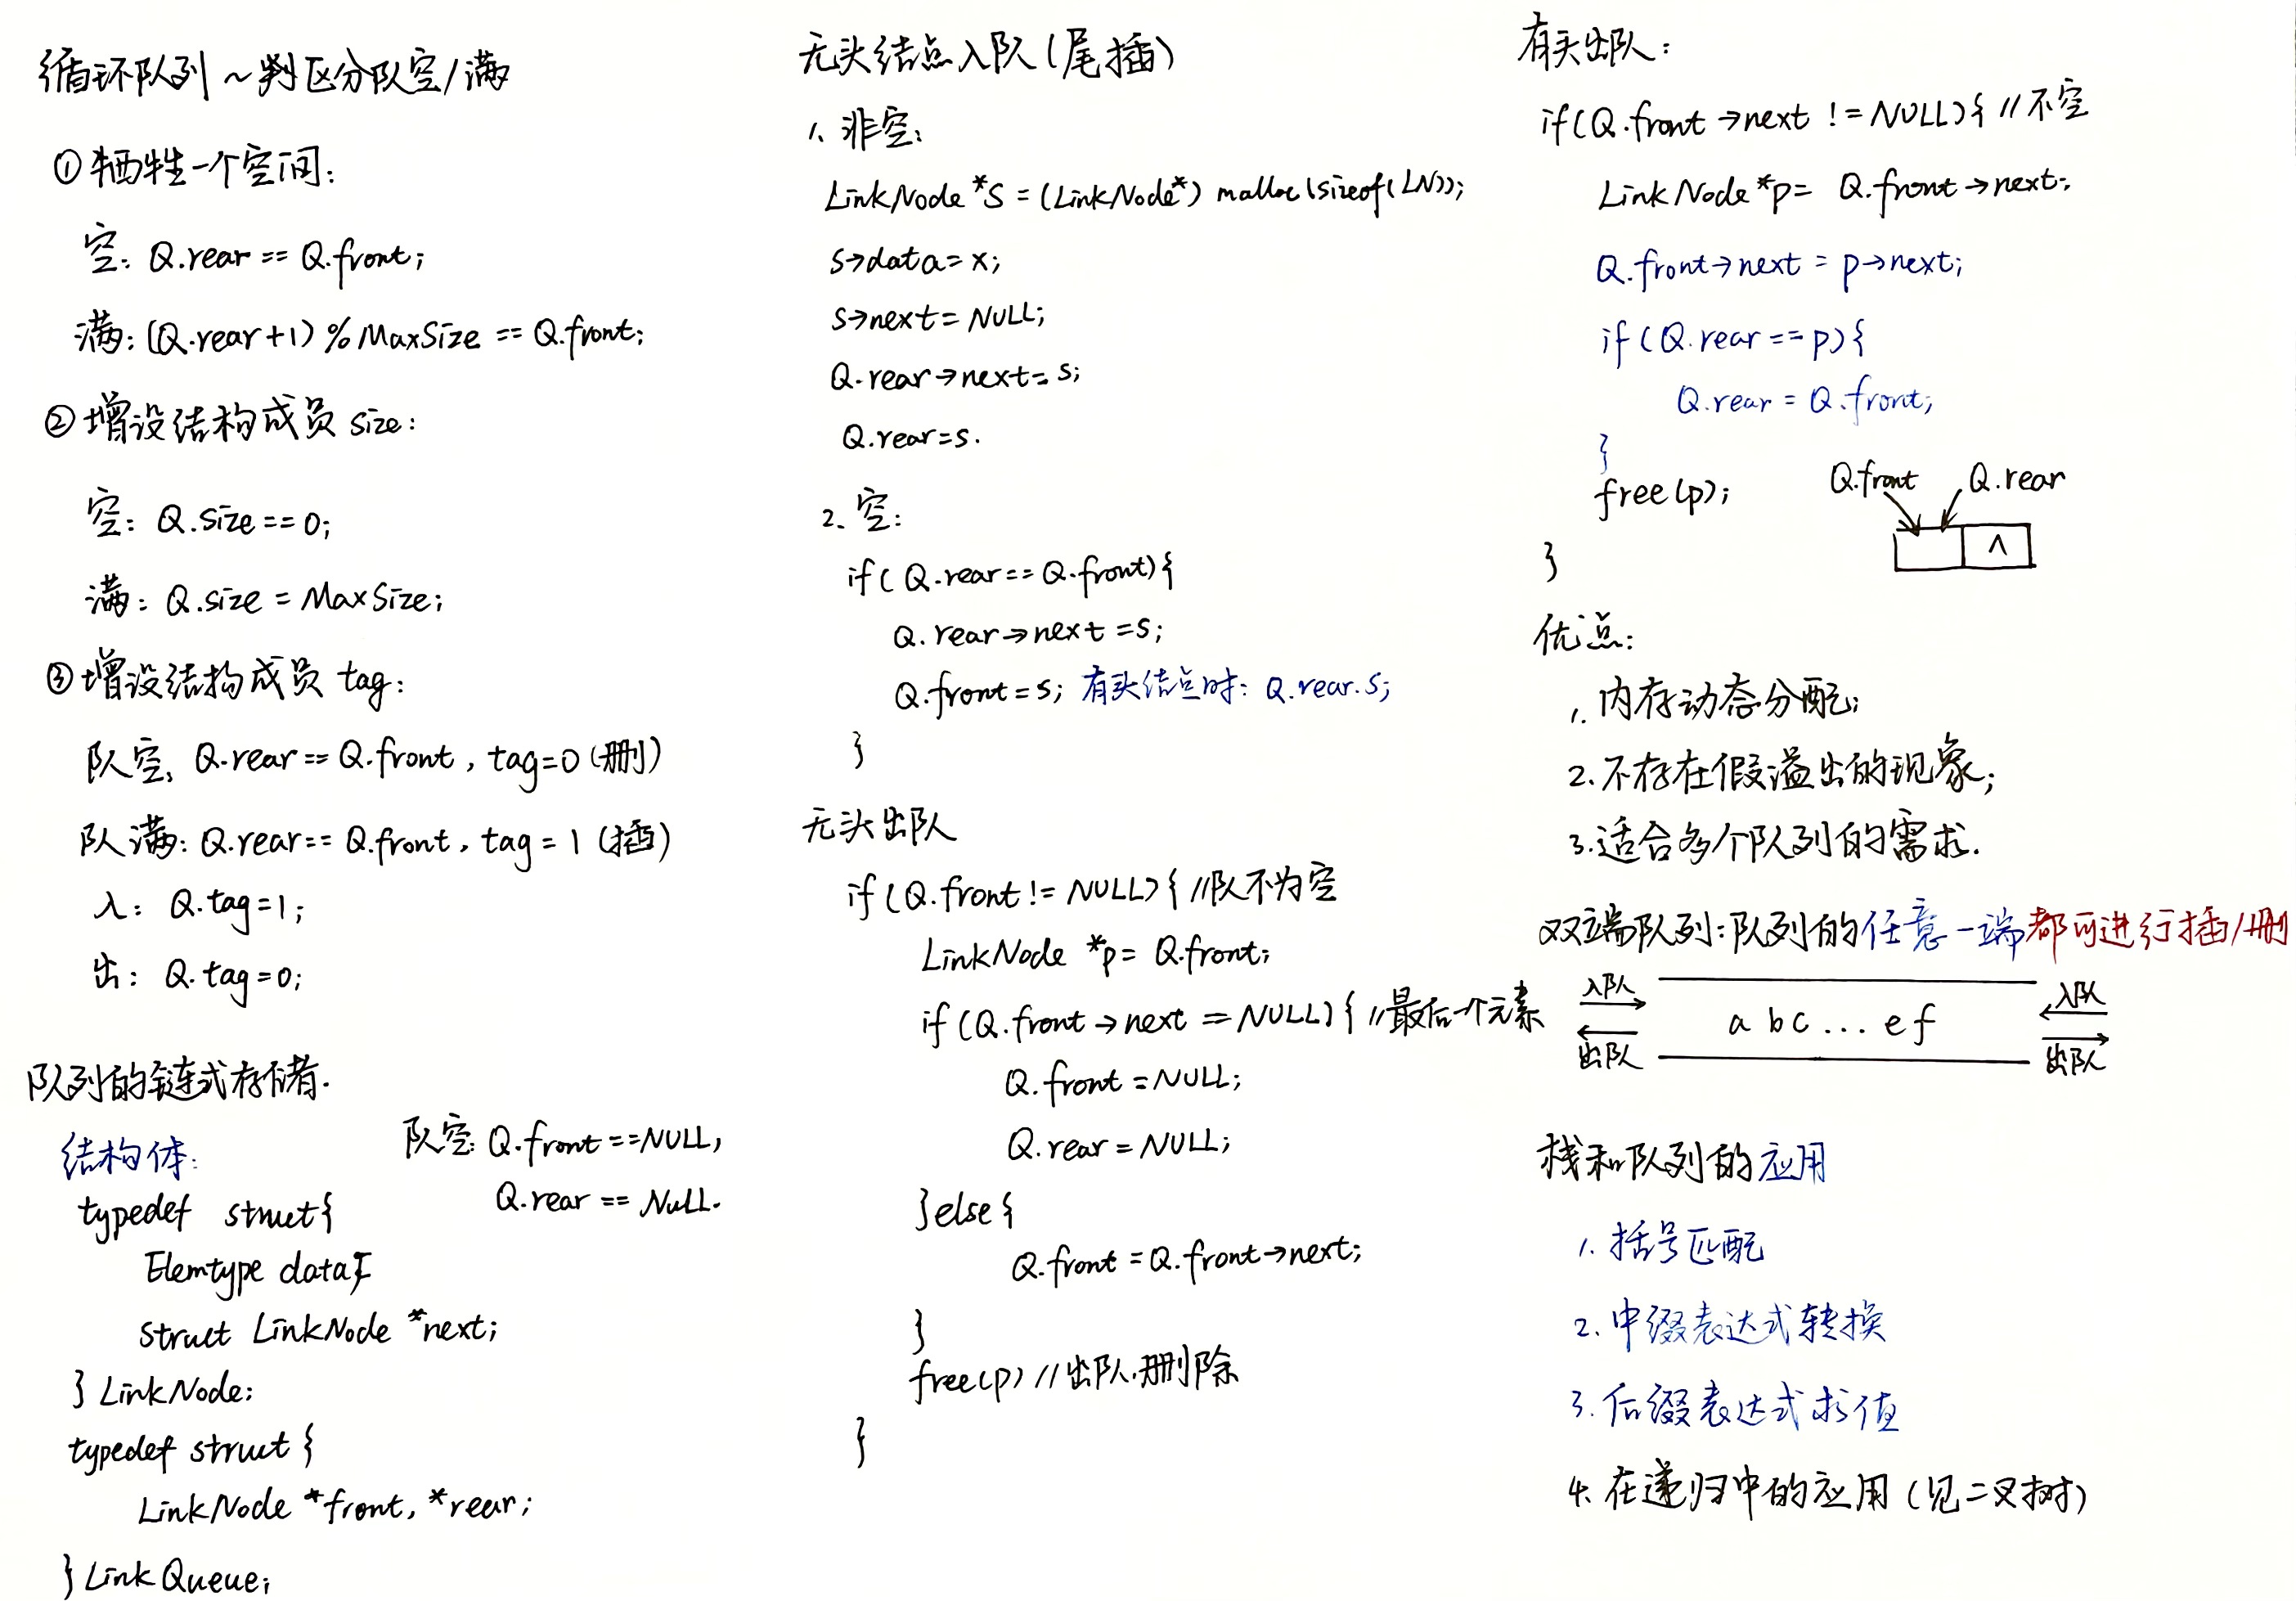 循环队列 ~ 判区分队空/满
① 牺牲一个空间:
空: Q.rear == Q.front;
满: (Q.rear+1) % MaxSize == Q.front;
② 增设结构成员 size:
空: Q.size == 0;
满: Q.size = MaxSize;
③ 增设结构成员 tag:
队空: Q.rear == Q.front, tag=0 (删)
队满: Q.rear == Q.front, tag = 1 (插)
入: Q.tag=1;
出: Q.tag=0;
队列的链式存储.
结构体:
队空: Q.front ==NULL,
Q.rear == Null.
typedef struct{
Elemtype data;
struct LinkNode *next;
} LinkNode;
typedef struct {
LinkNode *front, *rear;
} Link Queue;
无头结点入队 (尾插)
1. 非空:
LinkNode *S = (LinkNode*) malloc(sizeof(LN));
S→data=x;
S→next=NULL;
Q.rear→next=s;
Q.rear=s.
2. 空:
if( Q.rear == Q.front){
Q.rear→next =s;
Q.front=s; 有头结点时: Q.rear.s;
}
无头出队
if (Q.front != NULL) { //队不为空
LinkNode *p= Q.front;
if (Q.front→next == NULL) { //最后一个元素
Q.front =NULL;
Q.rear = NULL;
}else{
Q.front =Q.front→next;
}
free(p) //出队,删除
}
有头出队:
if(Q.front→next != NULL){ //不空
LinkNode *p= Q.front→next;
Q.front→next = p→next;
if (Q.rear == p){
Q.rear = Q.front;
}
free(p);
Q.front Q.rear
∧
}
优点:
1. 内存动态分配;
2. 不存在假溢出的现象;
3. 适合多个队列的需求.
双端队列: 队列的任意一端都可进行插/删
入队 入队
a b c ... e f
出队 出队
栈和队列的应用
1. 括号匹配
2. 中缀表达式转换
3. 后缀表达式求值
4. 在递归中的应用 (见二叉树)